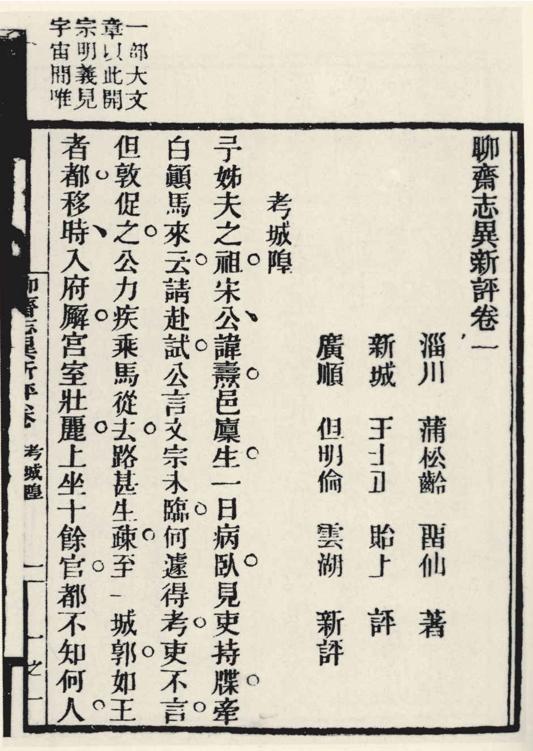 一部大文
章以此開
宗明義見
宇宙間唯
聊齋志異新評卷一
淄川 蒲松齡 留仙 著
新城 王士正 貽上 評
廣順 但明倫 雲湖 新評
考城隍
予姊夫之祖宋公諱燾邑廩生一日病臥見吏持牒牽
白顚馬來云請赴試公言文宗未臨何遽得考吏不言
但敦促之公力疾乘馬從去路甚生疎至一城郭如王
者都移時入府廨宮室壯麗上坐十餘官都不知何人
聊齋志異新評卷一 考城隍 一 一之一